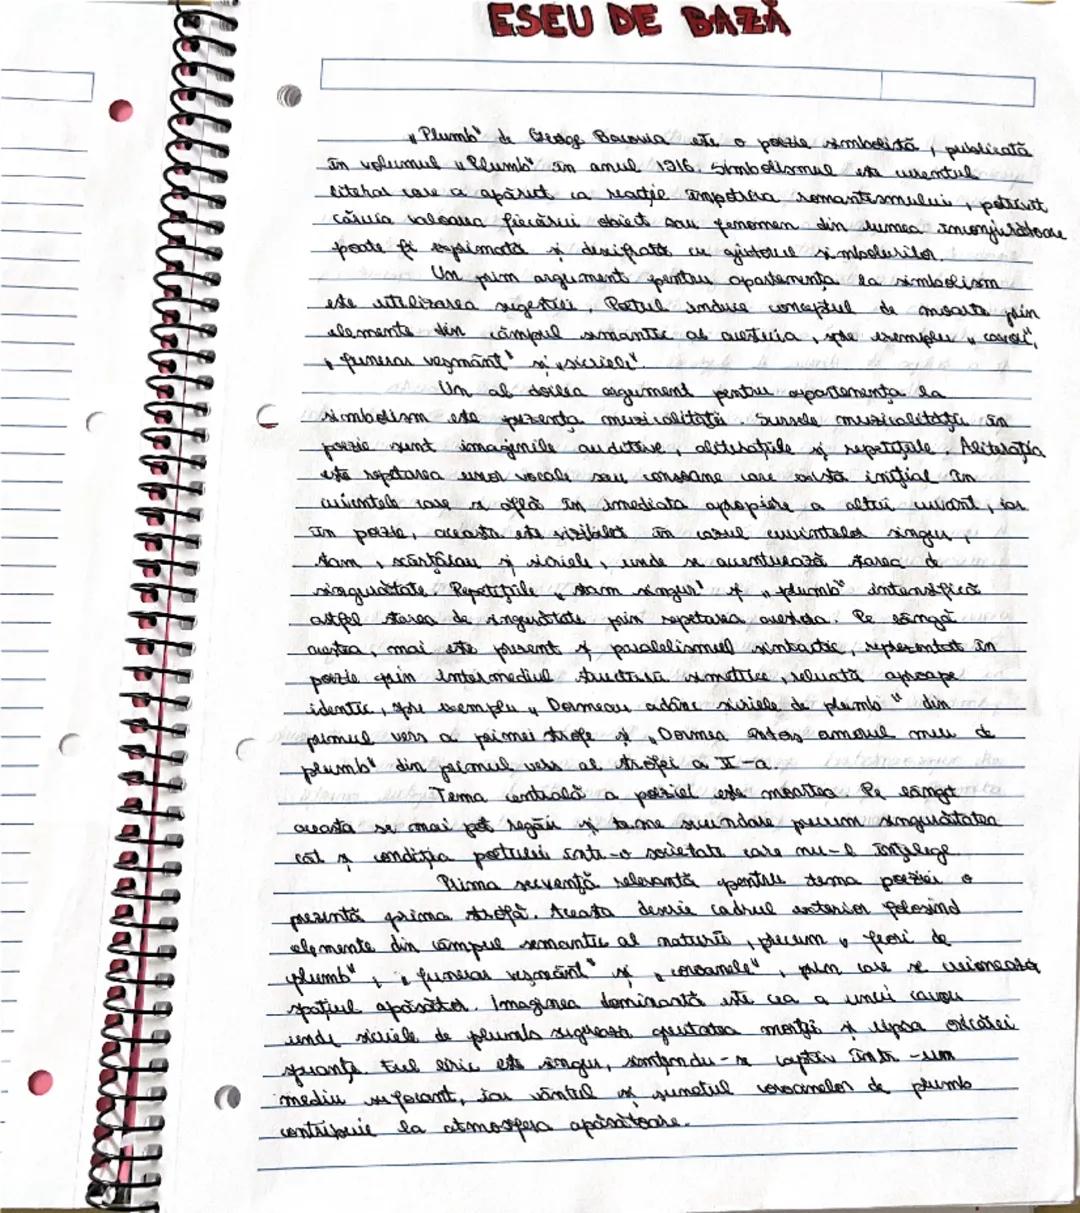 ESEU DE BAZĂ
„Plumb" de George Bacovia este o poezie simbolistă, publicată
în volumul „Plumb" în anul 1916. Simbolismul este curentul
literar care a apărut ca reacție împotriva romantismului, potrivit
căruia valoarea fiecărui obiect sau fenomen din lumea înconjurătoare
poate fi exprimată și descifrată cu ajutorul simbolurilor.
Un prim argument pentru apartenența la simbolism
este utilizarea sugestiei. Poetul induce conceptul de moarte prin
elemente din câmpul semantic al acestuia, spre exemplu „cavou",
„funerar veșmânt" și „sicriele".
Un al doilea argument pentru apartenența la
simbolism este prezența muzicalității. Sursele muzicalității în
poezie sunt imaginile auditive, aliterațiile și repetițiile. Aliterația
este repetarea unor vocale sau consoane care există inițial în
cuvintele care se află în imediata apropiere a altui cuvânt, iar
în poezie, aceasta este vizibilă în cazul cuvintelor singur,
stam, scârțâiau și sicriele, unde se accentuează starea de
singurătate. Repetițiile „stam singur" și „plumb" intensifică
astfel starea de singurătate prin repetarea acestora. Pe lângă
acestea, mai este prezent și paralelismul sintactic, reprezentat în
poezie prin intermediul structurii simetrice, reluată aproape
identic, spre exemplu „Dormeau adânc sicriele de plumb" din
primul vers a primei strofe și „Dormea întors amorul meu de
plumb" din primul vers al strofei a II-a.
Tema centrală a poeziei este moartea. Pe lângă
aceasta se mai pot regăsi și teme secundare precum singurătatea
cât și condiția poetului într-o societate care nu-l înțelege.
Prima secvență relevantă pentru tema poeziei o
prezintă prima strofă. Aceasta descrie cadrul exterior folosind
elemente din câmpul semantic al naturii, precum „flori de
plumb", „funerar veșmânt" și „coroanele", prin care se creionează
spațiul apăsător. Imaginea dominantă este cea a unui cavou
unde sicriele de plumb sugerează greutatea morții și lipsa oricărei
speranțe. Eul liric este singur, simțindu-se captiv într-un
mediu sufocant, iar vântul și sunetul coroanelor de plumb
contribuie la atmosfera apăsătoare.